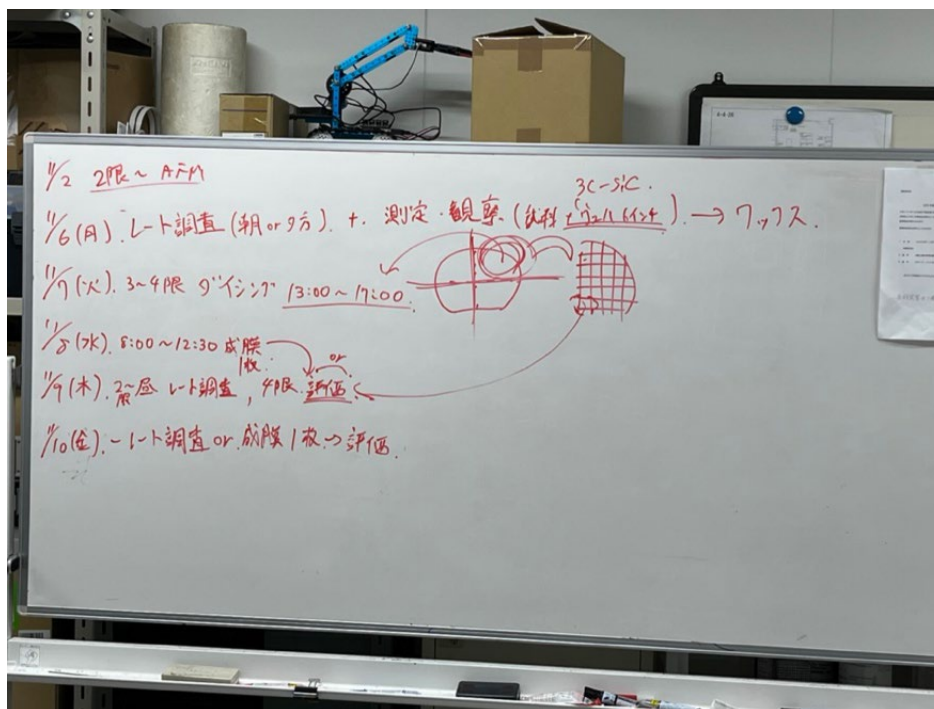 11/2 2限～ AFM
3C-SiC.
11/6(月). レート調査(朝or夕方). + 測定・観察(試料 + ウェハ6インチ). → ワックス.
11/7(火). 3～4限 ダイシング 13:00～17:00.
11/8(水). 8:00～12:30 成膜
1枚.
or
11/9(木). 2限～昼 レート調査, 4限. 評価.
11/10(金). レート調査 or. 成膜1枚. → 評価.